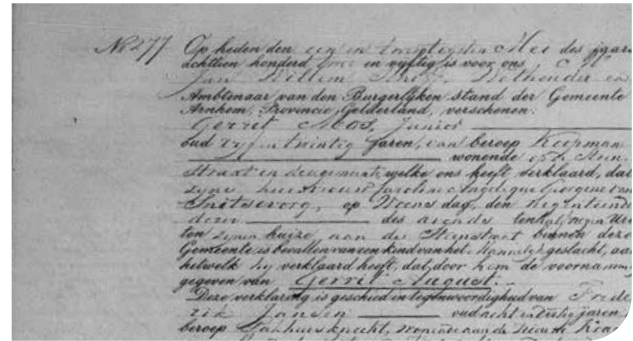 No 277 Op heden den een en twintigsten Mei des jaars
achttien honderd twee en vijftig is voor ons
Jan Willem Wethouder en
Ambtenaar van den Burgerlijken stand der Gemeente
Arnhem, Provincie Gelderland, verschenen:
Gerret Mos, Junior
oud en twintig jaren, van beroep Koopman
wonende
Straat in deze gemeente, welke ons heeft verklaard, dat
zijne huisvrouw Caroline Angelique Georgine van
op dag, den negentienden
dezer des avonds ten half negen ure
ten zijnen huize, aan de binnen deze
Gemeente is bevallen van een kind van het Mannelijk geslacht, aan
hetwelk hij verklaard heeft, dat door hem de voornamen
gegeven van Gerrit August.
Deze verklaring is geschied in tegenwoordigheid van Frede
rik Jansen oud acht en dertig jaren
beroep Pakhuisknecht, wonende aan de Nieuwe